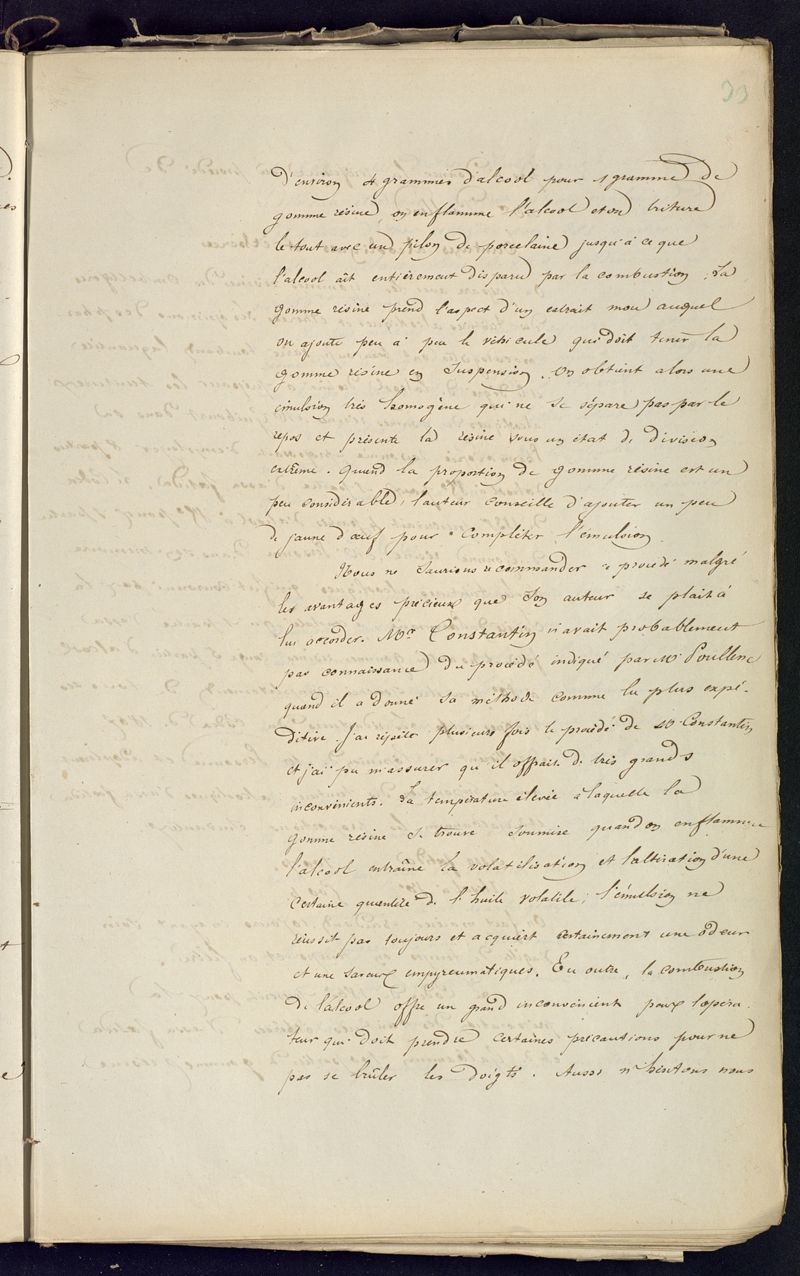 33
d'environ 4 grammes d'alcool pour 1 gramme de
gomme résine, on enflamme l'alcool et on triture
le tout avec un pilon de porcelaine jusqu'à ce que
l'alcool aît entièrement disparu par la combustion. La
gomme résine prend l'aspect d'un extrait mou auquel
on ajoute peu à peu le véhicule qui doit tenir la
gomme résine en suspension. On obtient alors une
émulsion très homogène qui ne se sépare pas par le
repos et présente la résine sous un état de division
extrême. Quand la proportion de gomme résine est un
peu considérable, l'auteur conseille d'ajouter un peu
de jaune d'œuf pour compléter l'émulsion.
Nous ne saurions recommander ce procédé malgré
les avantages précieux que son auteur se plaît à
lui accorder. Mr Constantin n'avait probablement
pas connaissance du procédé indiqué par Mr Poullenc
quand il a donné sa méthode comme la plus expé-
ditive. J'ai répété plusieurs fois le procédé de Mr Constantin
et j'ai pu m'assurer qu'il offrait de très grands
inconvénients. La température élevée à laquelle la
gomme résine se trouve soumise quand on enflamme
l'alcool entraîne la volatilisation et l'altération d'une
certaine quantité de l'huile volatile; l'émulsion ne
réussit pas toujours et acquiert certainement une odeur
et une saveur empyreumatiques. En outre, la combustion
de l'alcool offre un grand inconvénient pour l'opéra-
teur qui doit prendre certaines précautions pour ne
pas se brûler les doigts. Aussi n'hésitons nous